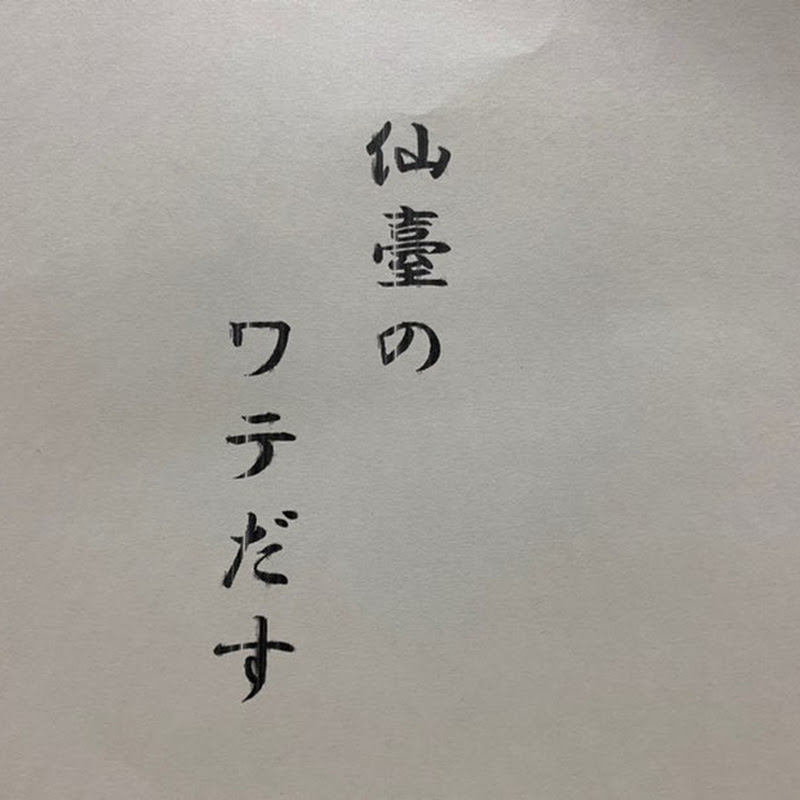 仙臺の
ワテだす